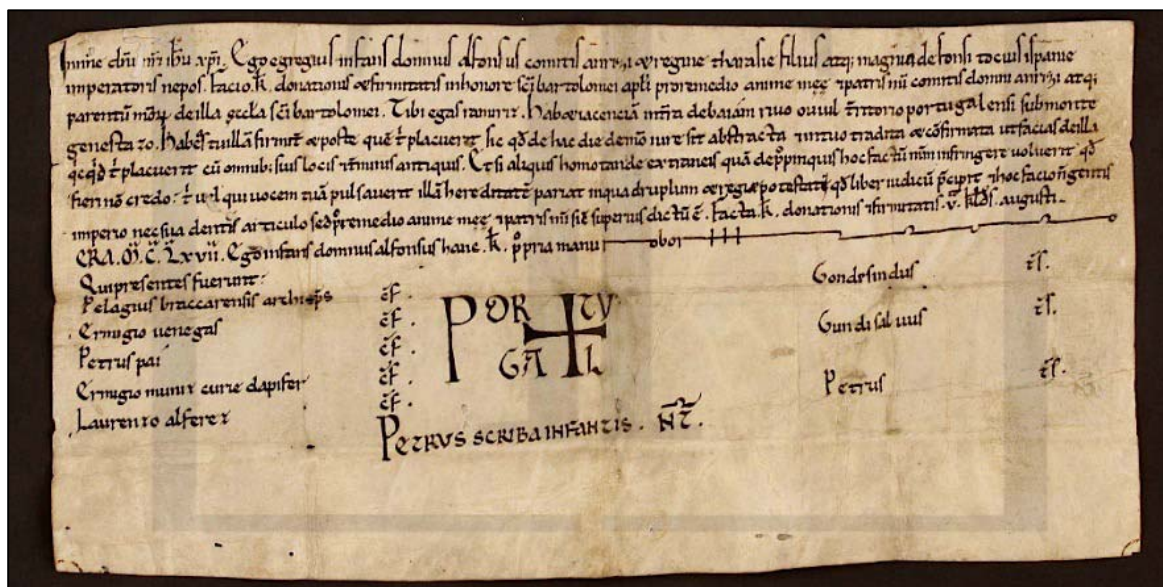 In nñe dñi nr̃i ihũ xp̃i. Ego egregius infans domnus alfonsus comitis anrici & regine tharasie filius atq; magni adefonsi tocius ispanie
imperatoris nepos. facio .k̃. donationis & firmitatis in honore sc̃i bartolomei apl̃i pro remedio anime meę & patris mei comitis domni anrici atq;
parentũ meoꝝ de illa eccl̃a sc̃i bartolomei. Tibi egas ramiriz. Habet iacenciã
genestazo. Habeas tu illã firmit̃ & post te quẽ t̃ placuerit. sic qd̃ de hac die de meo iure sit abstracta & in tuo tradita & cõfirmata ut facias de illa
qcqd̃ t̃ placuerit cũ omnib; suis locis & t̃minis antiquis. Et si aliquis homo tam de extraneis quã de p̃pinquis hoc factũ meum infringere voluerit qd̃
fieri nõ credo: t̃ ł qui vocem tuã pulsaverit illã hereditatẽ pariat in quadruplum & regię potestati qd̃ liber iudicũ p̃cipit & hoc facio ñ gentis
imperio nec suadentis articulo sed p̃ remedio anime meę & patris mei sic̃ superius dictũ ẽ. facta .k̃. donationis & firmitatis .v. kl̃ds. augusti.
ERA. M. C. LXVII. Ego infans domnus alfonsus hanc .k̃. p̃pria manu roboro
Qui presentes fuerunt:
Pelagius braccarensis archiep̃s cf̃.
Ermigio venegas cf̃.
Petrus pai cf̃.
Ermigio muniz curie dapifer cf̃.
Laurenzo alferez cf̃.
PORTUGAL
PETRUS SCRIBA INFANTIS. Nt̃.
Gondesindus ts̃.
Gundisalvus ts̃.
Petrus ts̃.